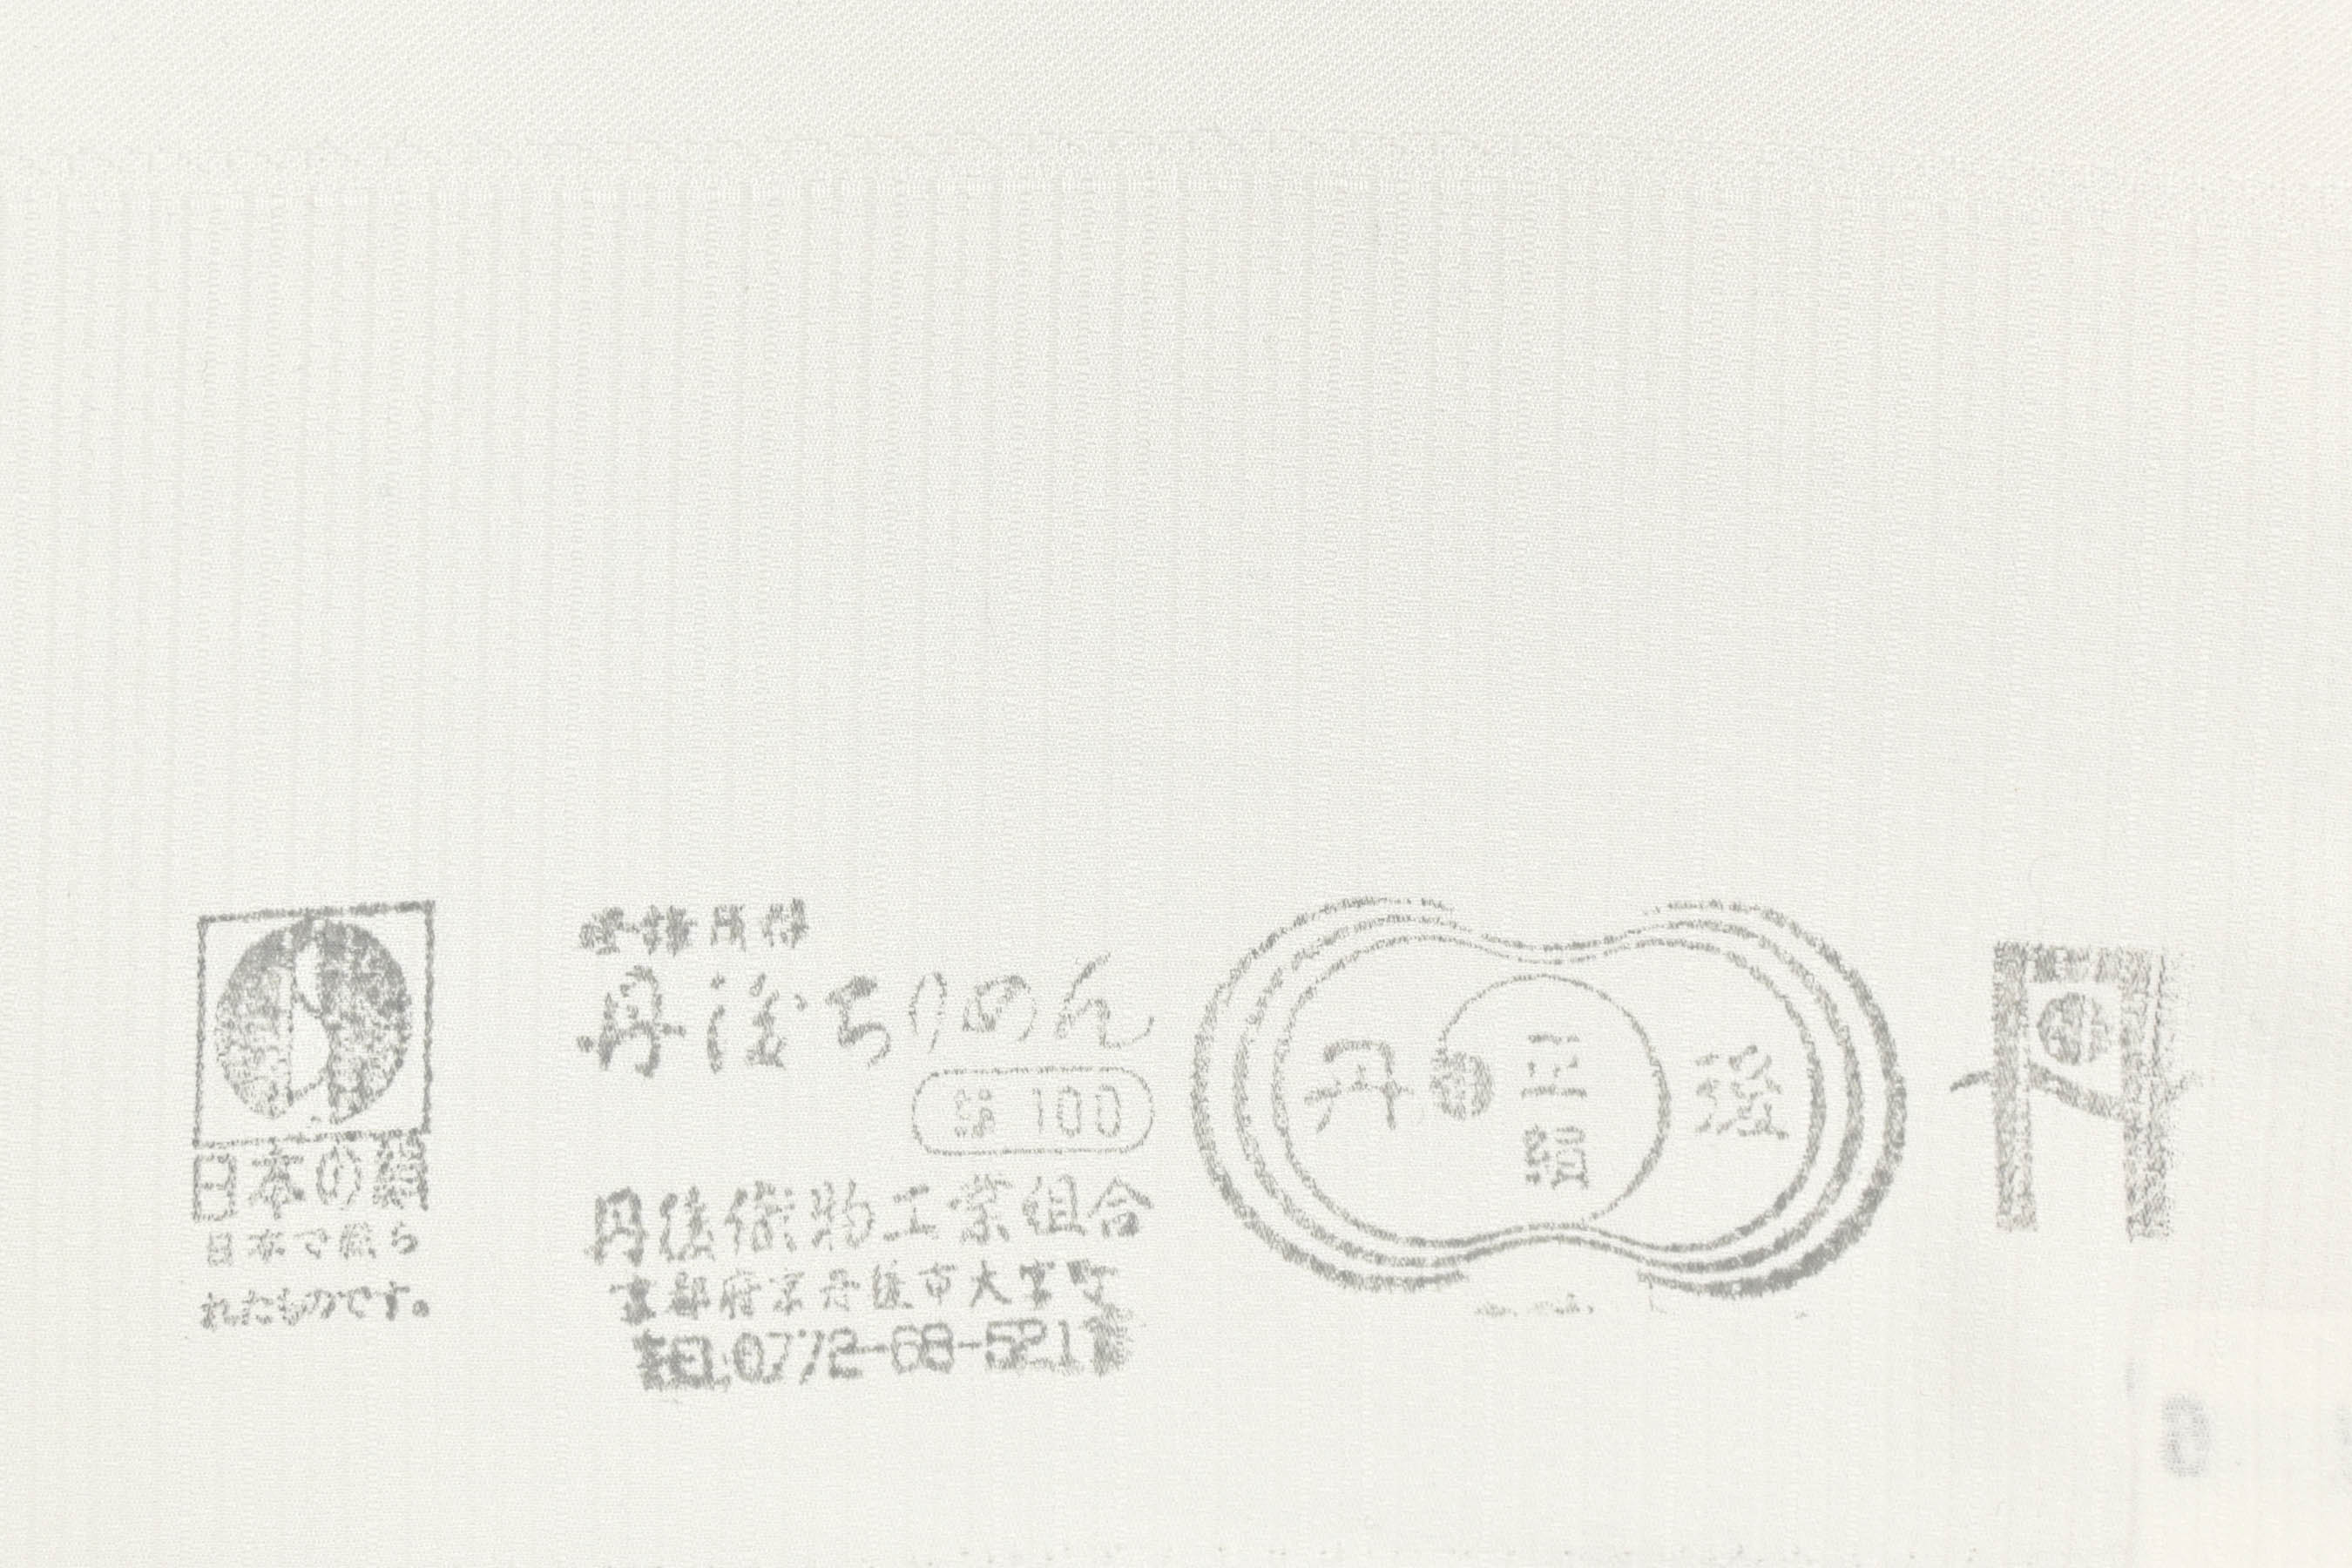 日本の絹
日本で織ら
れたものです。
登録商標
丹後ちりめん
絹 100
丹後織物工業組合
京都府京丹後市大宮町
TEL0772-68-5211
丹 正絹 後
丹